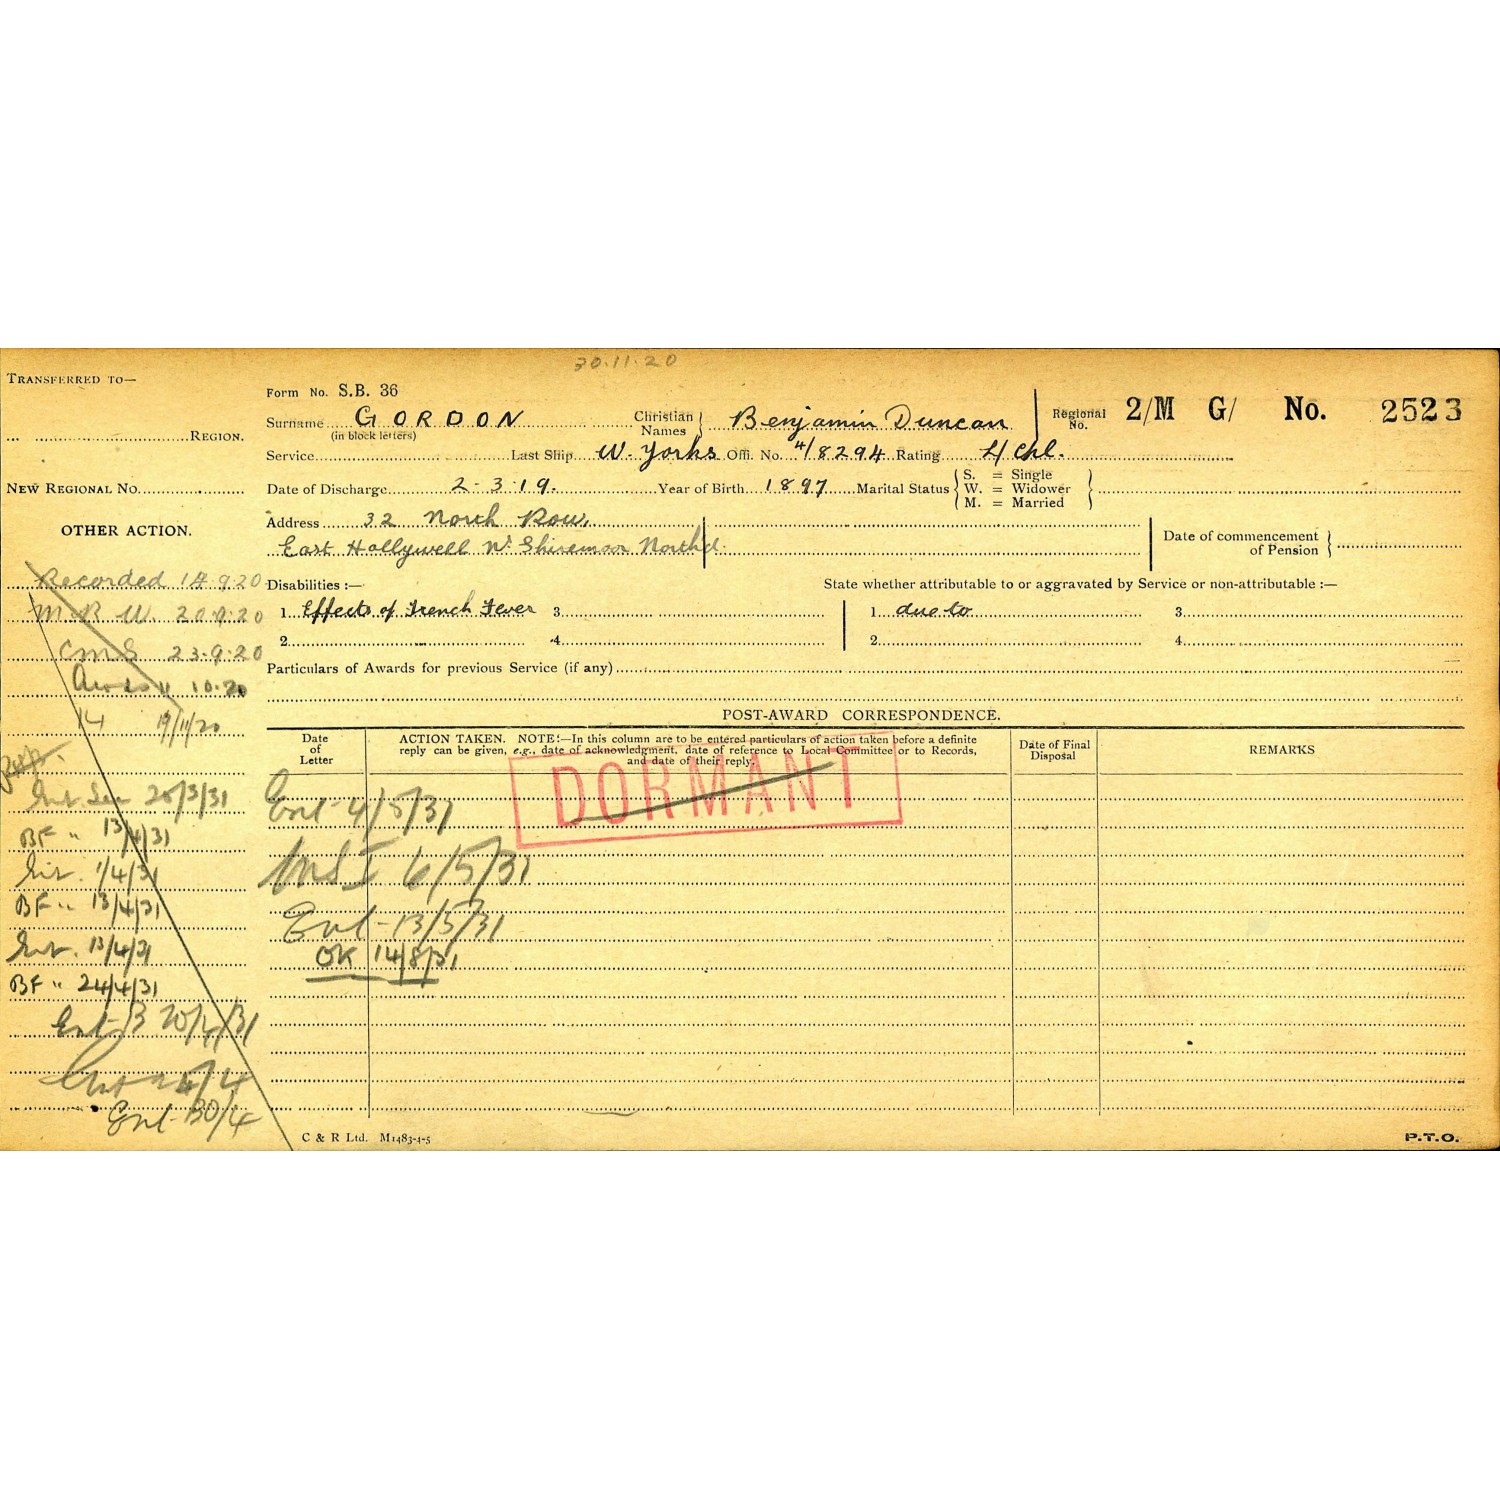 30.11.20
TRANSFERRED TO—
REGION.
NEW REGIONAL No.
OTHER ACTION.
Recorded 14.9.20
M.R.W. 20.9.20
CMS 23.9.20
11 10.20
14 19/11/20
25/3/31
BF " 13/4/31
Int. 1/4/31
BF " 13/4/31
Int. 13/4/31
BF " 24/4/31
Ent 30/4
Form No. S.B. 36
Surname GORDON Christian Names Benjamin Duncan Regional No. 2/M G/ No. 2523
(in block letters)
Service Last Ship W. Yorks Off. No. 4/8294 Rating L/Cpl.
Date of Discharge 2-3-19. Year of Birth 1897 Marital Status { S. = Single
W. = Widower
M. = Married }
Address 32 North Row,
East Hollywell Nr Shiremoor North'd.
Date of commencement of Pension }
Disabilities :— State whether attributable to or aggravated by Service or non-attributable :—
1. Effects of Trench Fever 3. 1. due to 3.
2. 4. 2. 4.
Particulars of Awards for previous Service (if any)
POST-AWARD CORRESPONDENCE.
Date of Letter
ACTION TAKEN. NOTE:—In this column are to be entered particulars of action taken before a definite
reply can be given, e.g., date of acknowledgment, date of reference to Local Committee or to Records,
and date of their reply.
Date of Final Disposal
REMARKS
DORMANT
Ent 4/5/31
6/5/31
Ent - 13/5/31
OK 14/8/31
C & R Ltd. M1483-4-5
P.T.O.